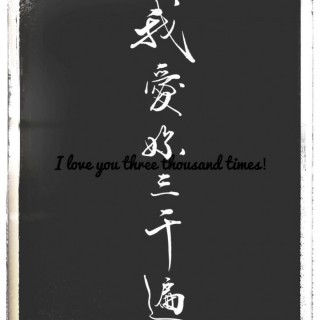 我愛妳三千遍
I love you three thousand times!